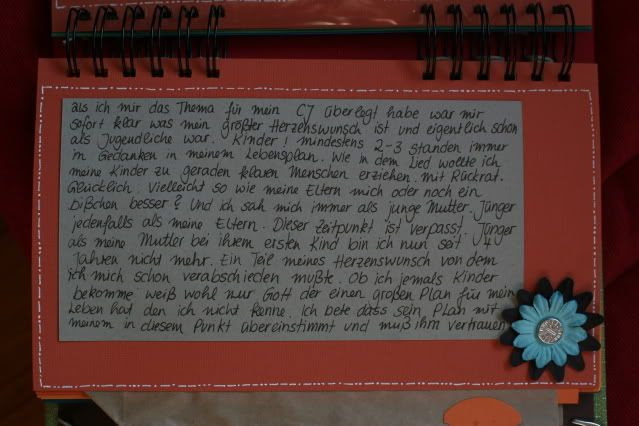 als ich mir das Thema für mein CJ überlegt habe war mir
sofort klar was mein größter Herzenswunsch ist und eigentlich schon
als Jugendliche war. Kinder! mindestens 2-3 standen immer
in Gedanken in meinem Lebensplan. Wie in dem Lied wollte ich
meine Kinder zu geraden klaren Menschen erziehen. mit Rückrat.
Glücklich. Vielleicht so wie meine Eltern mich oder noch ein
bißchen besser? Und ich sah mich immer als junge Mutter. Jünger
jedenfalls als meine Eltern. Dieser Zeitpunkt ist verpasst. Jünger
als meine Mutter bei ihrem ersten Kind bin ich nun seit 4
Jahren nicht mehr. Ein Teil meines Herzenswunsch von dem
ich mich schon verabschieden mußte. Ob ich jemals Kinder
bekomme weiß wohl nur Gott der einen großen Plan für mein
Leben hat den ich nicht kenne. Ich bete dass sein Plan mit
meinem in diesem Punkt übereinstimmt und muß ihm vertrauen